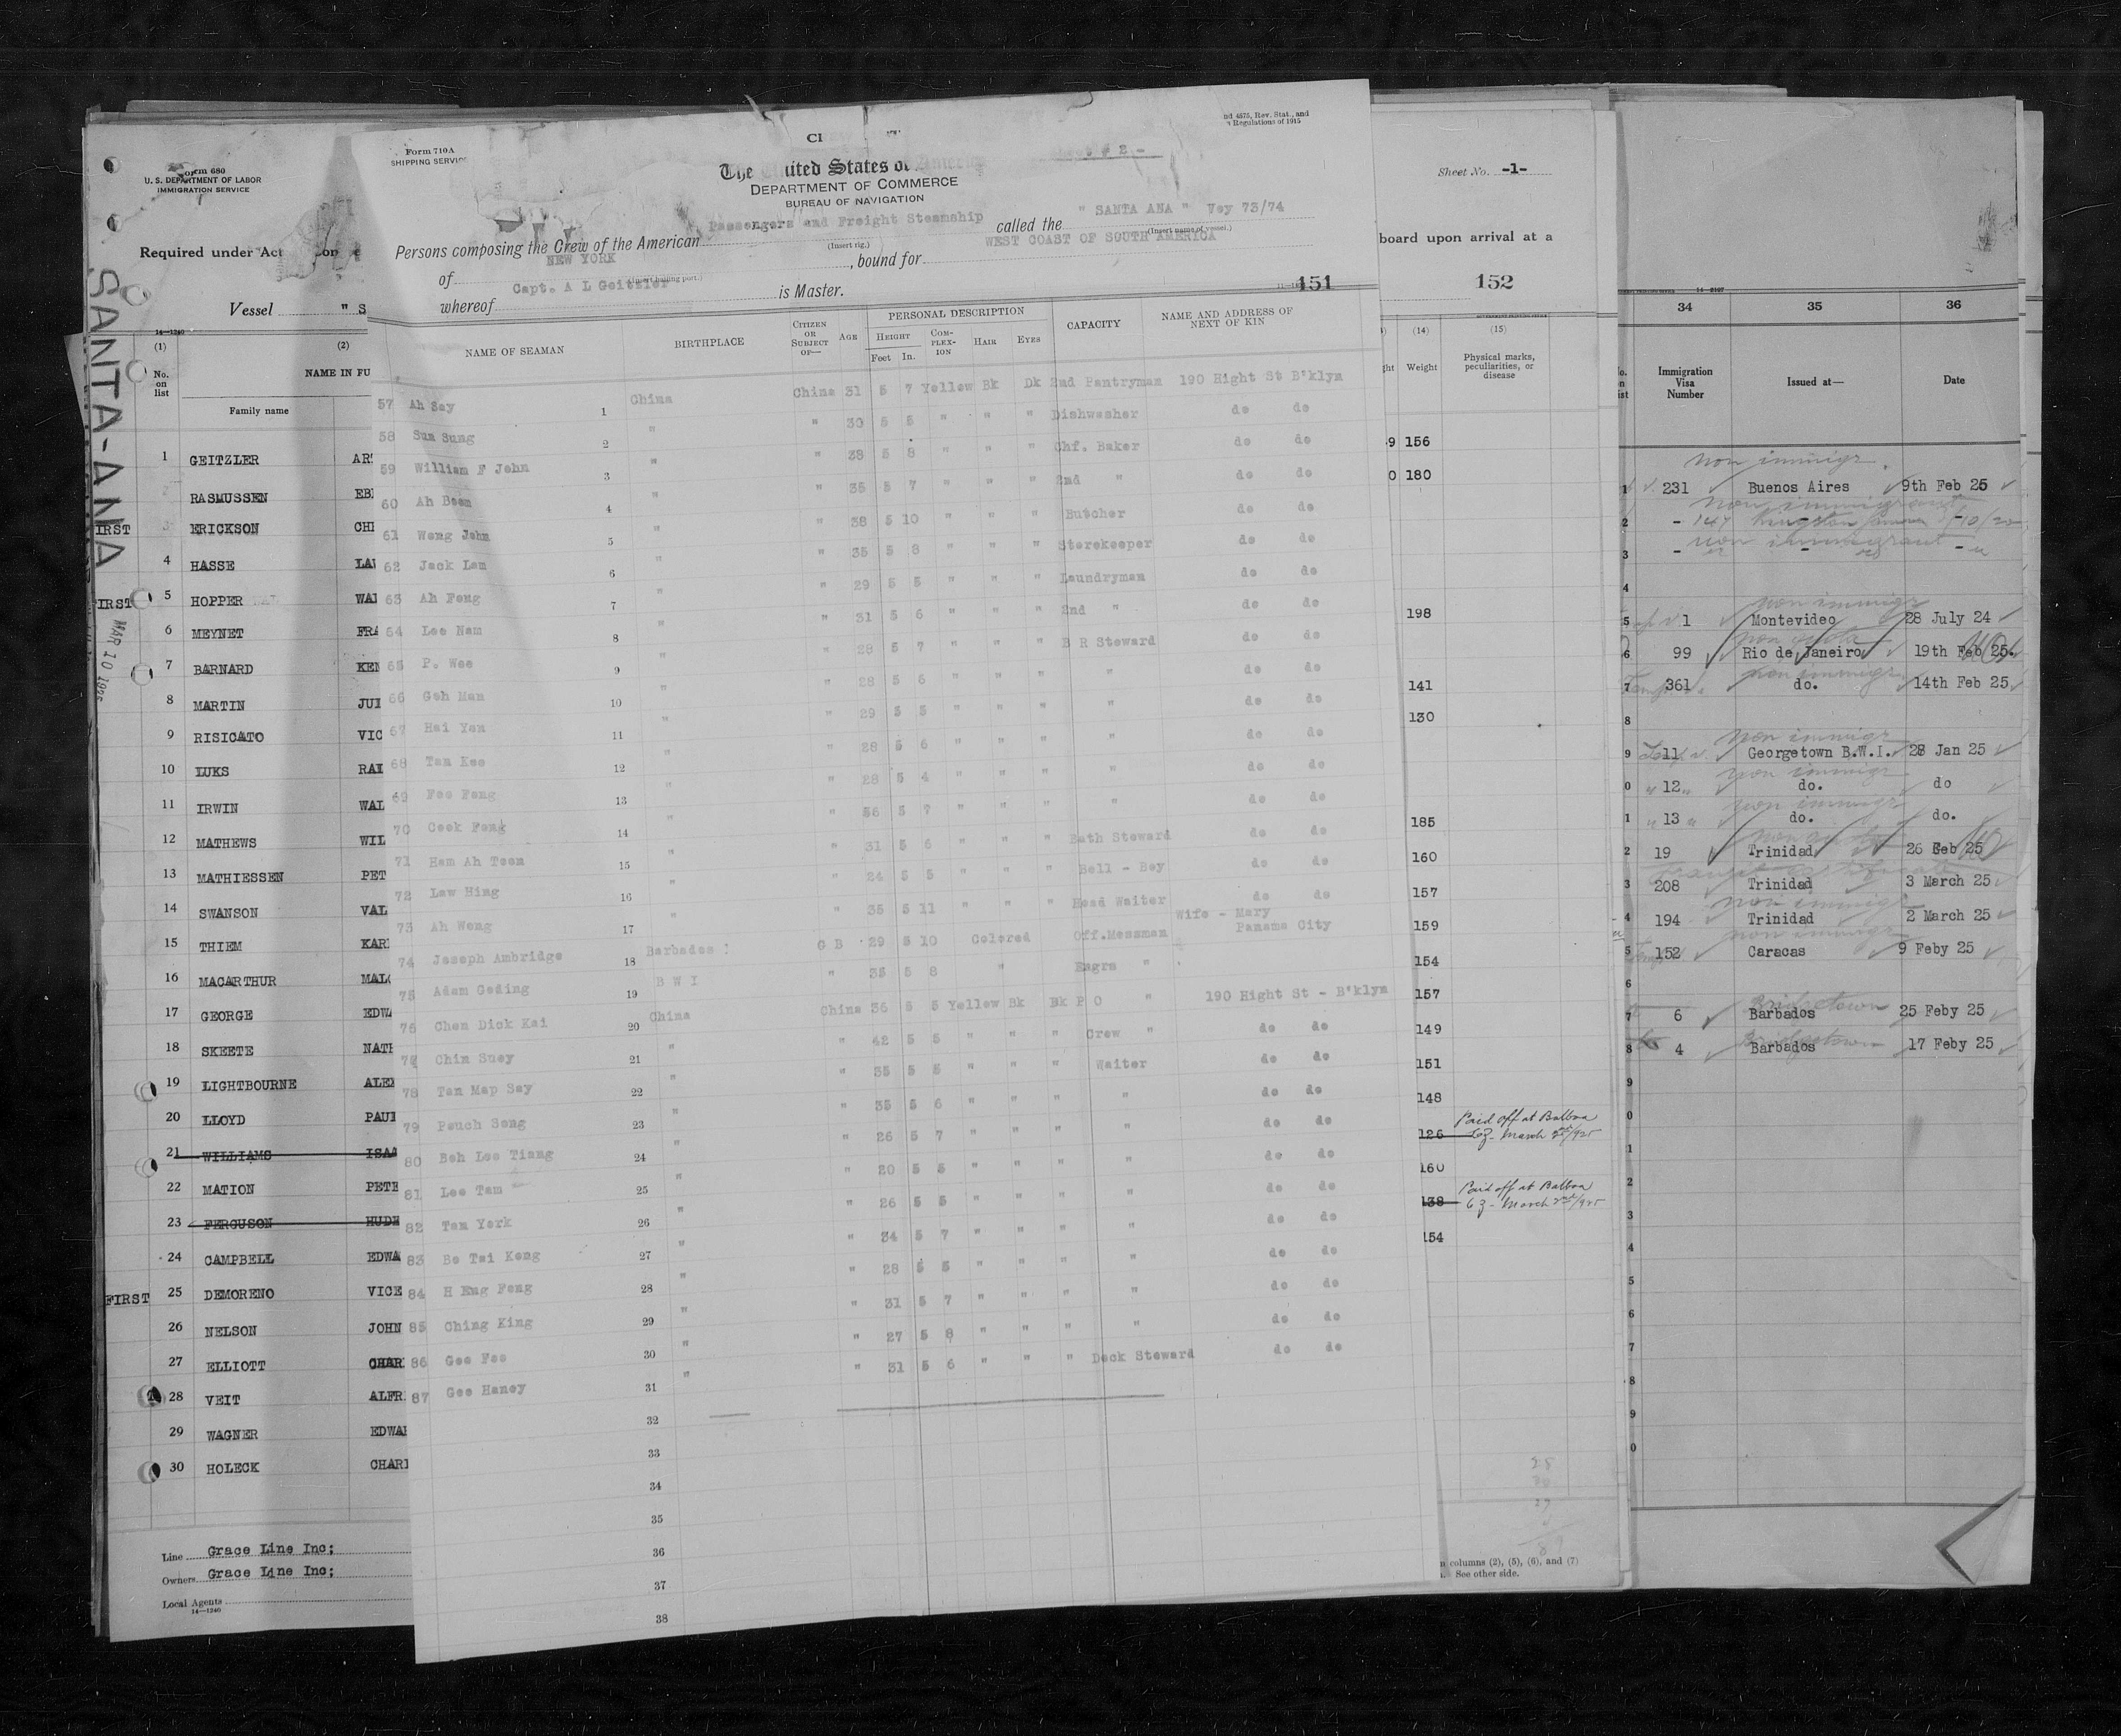 Form 680
U. S. DEPARTMENT OF LABOR
IMMIGRATION SERVICE
Required under Act
Vessel " S
SANTA-ANA
MAR 10 1925
14—1240
(1) (2)
No. on list
NAME IN FU
Family name
1 GEITZLER
RASMUSSEN
IRST 3 ERICKSON
4 HASSE
IRST 5 HOPPER
6 MEYNET
7 BARNARD
8 MARTIN
9 RISICATO VIC
10 LUKS
11 IRWIN WAL
12 MATHEWS WIL
13 MATHIESSEN PET
14 SWANSON VAL
15 THIEM
16 MACARTHUR
17 GEORGE
18 SKEETE
19 LIGHTBOURNE
20 LLOYD
21 WILLIAMS
22 MATION
23 FERGUSON
24 CAMPBELL EDWA
FIRST 25 DEMORENO VICE
26 NELSON JOHN
27 ELLIOTT CHAR
28 VEIT ALFR
29 WAGNER
30 HOLECK
Line Grace Line Inc;
Owners Grace Line Inc;
Local Agents
14—1240
Form 710A
SHIPPING SERVIC
nd 4575, Rev. Stat., and
Regulations of 1915
The United States of America
DEPARTMENT OF COMMERCE
BUREAU OF NAVIGATION
- 2 -
Persons composing the Crew of the American Passengers and Freight Steamship called the " SANTA ANA " Voy 73/74
(Insert rig.) (Insert name of vessel.)
of NEW YORK , bound for WEST COAST OF SOUTH AMERICA
(Insert hailing port.)
whereof Capt. A L Geitzler is Master.
151
NAME OF SEAMAN BIRTHPLACE CITIZEN OR SUBJECT OF— AGE PERSONAL DESCRIPTION CAPACITY NAME AND ADDRESS OF NEXT OF KIN
HEIGHT COM-PLEX-ION HAIR EYES
Feet In.
57 Ah Say 1 China China 31 5 7 Yellow Bk Dk 2nd Pantryman 190 Hight St B'klyn
58 Sun Sung 2 " " 30 5 5 " " " Dishwasher do do
59 William F John 3 " " 38 5 8 " " " Chf. Baker do do
60 Ah Boon 4 " " 35 5 7 " " " 2nd " do do
61 Wong John 5 " " 38 5 10 " " " Butcher do do
62 Jack Lam 6 " " 35 5 8 " " " Storekeeper do do
63 Ah Fong 7 " " 29 5 5 " " " Laundryman do do
64 Lee Nam 8 " " 31 5 6 " " " 2nd " do do
65 P. Wee 9 " " 28 5 7 " " " B R Steward do do
66 Goh Man 10 " " 28 5 6 " " " " do do
67 Hai Yen 11 " " 29 5 5 " " " " do do
68 Tan Kee 12 " " 28 5 6 " " " " do do
69 Foo Fong 13 " " 28 5 4 " " " " do do
70 Cook Fong 14 " " 56 5 7 " " " " do do
71 Ham Ah Toon 15 " " 31 5 6 " " " Bath Steward do do
72 Law Hing 16 " " 24 5 5 " " " Bell - Boy do do
73 Ah Wong 17 " " 35 5 11 " " " Head Waiter do do
74 Joseph Ambridge 18 Barbados G B 29 5 10 Colored Off.Messman Wife - Mary Panama City
75 Adam Goding 19 B W I " 35 5 8 " Engrs "
76 Chen Dick Kai 20 China China 36 5 5 Yellow Bk Bk P O " 190 Hight St - B'klyn
77 Chin Suey 21 " " 42 5 5 " " " Crew " do do
78 Tan Map Say 22 " " 35 5 5 " " " Waiter do do
79 Pouch Song 23 " " 35 5 6 " " " " do do
80 Boh Lee Tiang 24 " " 26 5 7 " " " " do do
81 Lee Tam 25 " " 20 5 5 " " " " do do
82 Tan York 26 " " 26 5 5 " " " " do do
83 Bo Tai Kong 27 " " 34 5 7 " " " " do do
84 H Eng Fong 28 " " 28 5 5 " " " " do do
85 Ching King 29 " " 31 5 7 " " " " do do
86 Gee Foo 30 " " 27 5 8 " " " " do do
87 Gee Haney 31 " " 31 5 6 " " " Deck Steward do do
32
33
34
35
36
37
38
Sheet No. -1-
board upon arrival at a
152
(14) (15)
Weight
Physical marks, peculiarities, or disease
156
180
198
141
130
185
160
157
159
154
157
149
151
148
126 Paid off at Balboa
CZ - March 2nd/925
160
138 Paid off at Balboa
CZ - March 2nd/925
154
n columns (2), (5), (6), and (7)
See other side.
34 35 36
Immigration Visa Number
Issued at—
Date
non immigr.
1 231 Buenos Aires 9th Feb 25
non immigrant
2 - 147 Kingston 10/25
non immigrant
3
4
non immigr
5 1 Montevideo 28 July 24
non quota
6 99 Rio de Janeiro 19th Feb 25.
non immigr
7 361 do. 14th Feb 25
8
non immigr
9 11 Georgetown B.W.I. 28 Jan 25
non immigr
0 " 12 " do. do
non immigr
1 " 13 " do. do.
non quota
2 19 Trinidad 26 Feb 25
3 208 Trinidad 3 March 25
non immigr
4 194 Trinidad 2 March 25
non immigr
5 152 Caracas 9 Feby 25
6
Bridgetown
7 6 Barbados 25 Feby 25
Bridgetown
8 4 Barbados 17 Feby 25
9
0
1
2
3
4
5
6
7
8
9
0